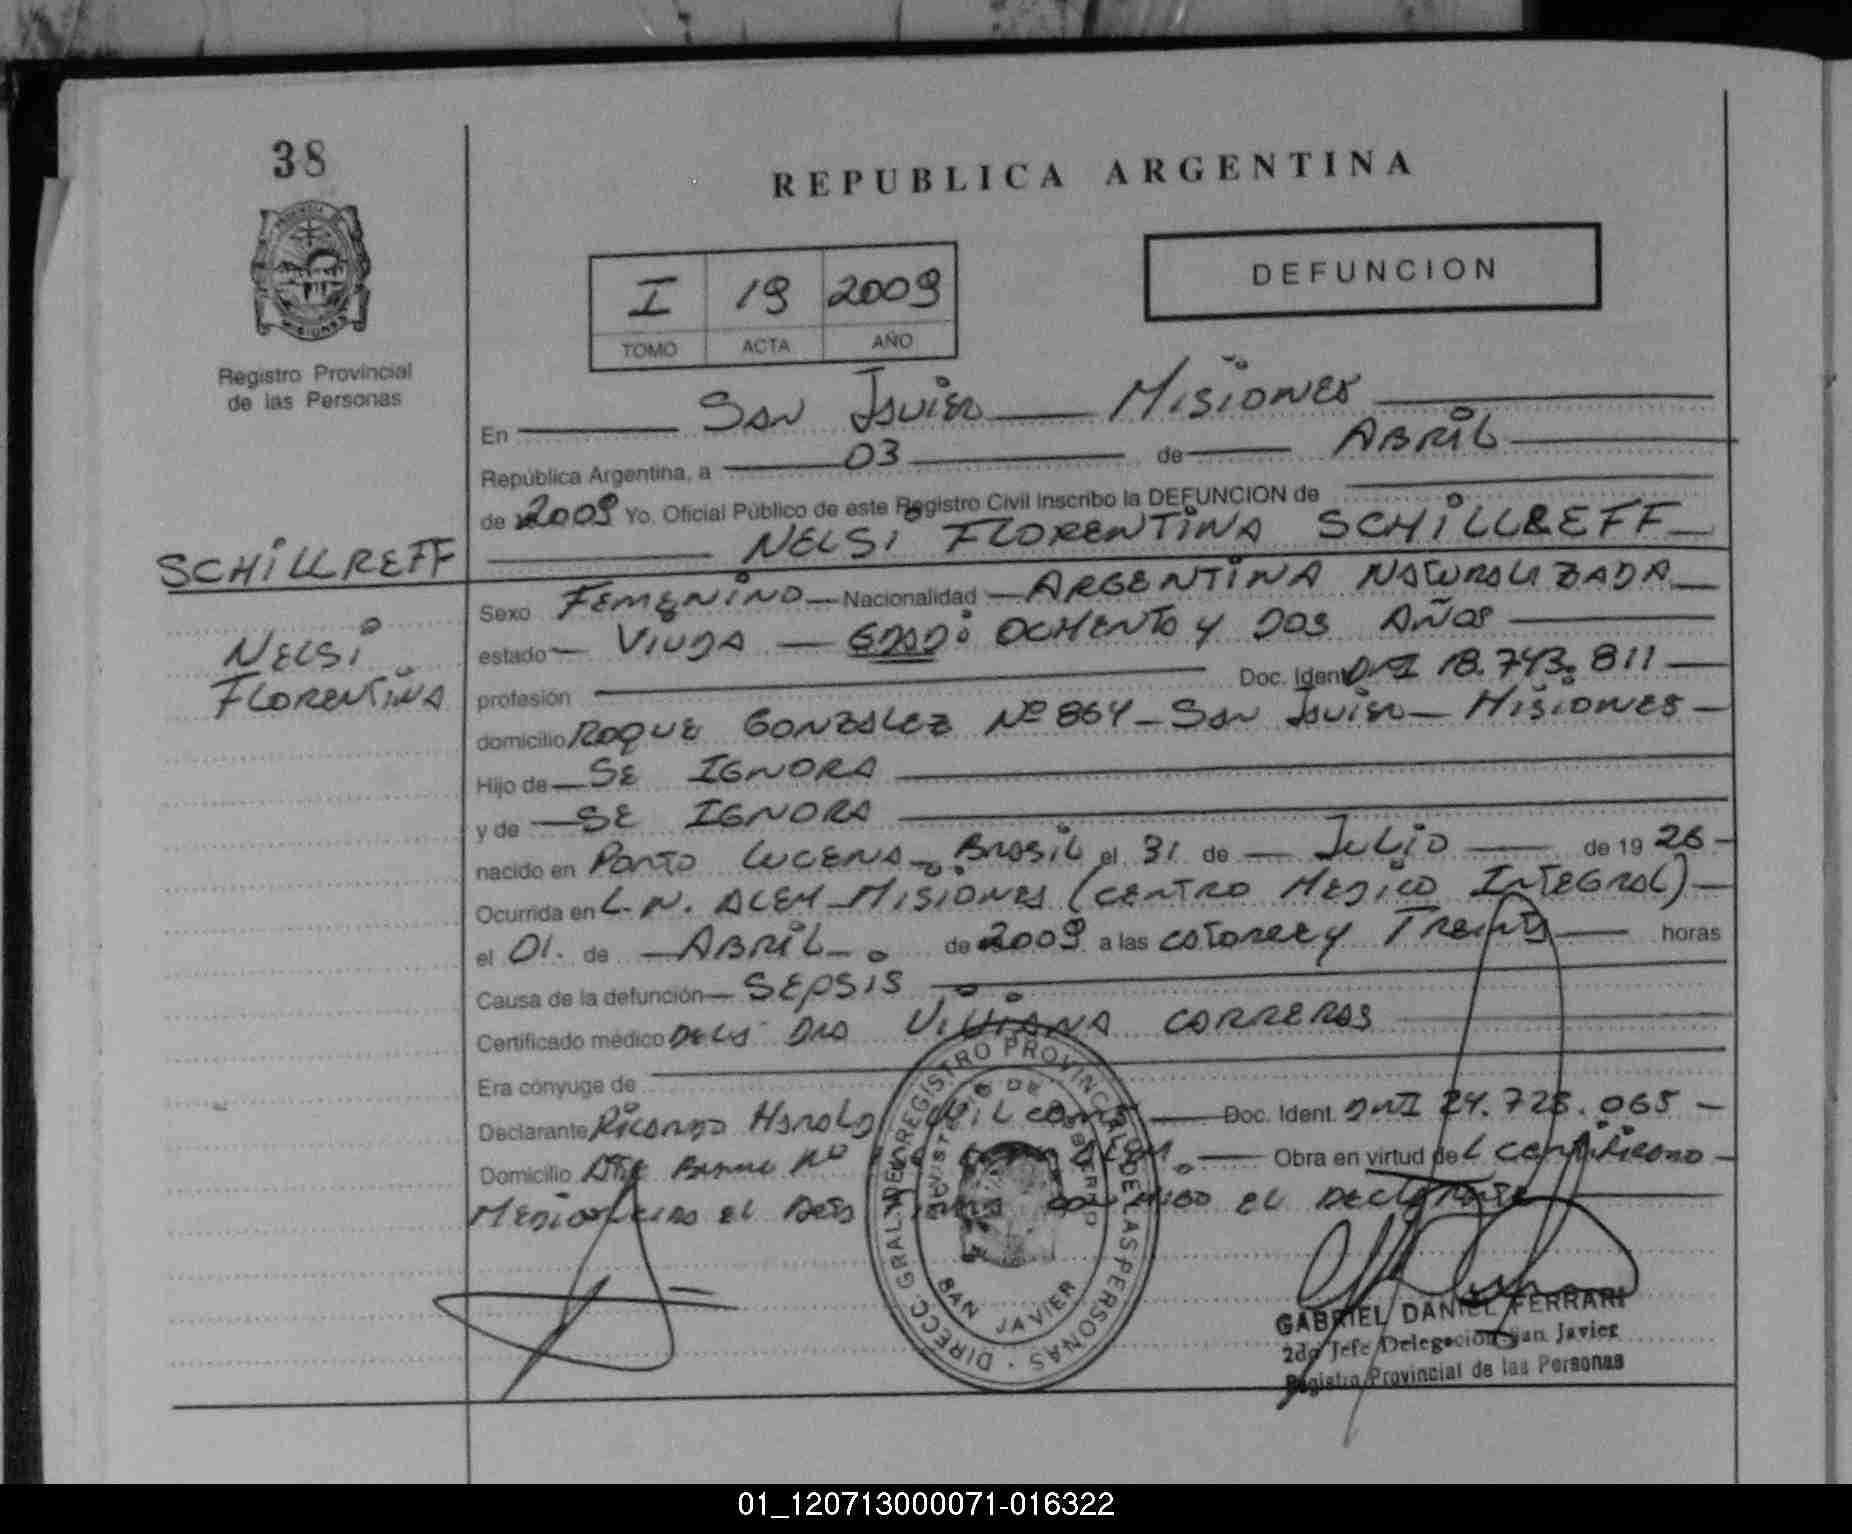 38
REPUBLICA ARGENTINA
PROVINCIA DE
MISIONES
Registro Provincial
de las Personas
I 19 2009
TOMO ACTA AÑO
DEFUNCION
En San Javier Misiones
República Argentina, a 03 de ABRIL
de 2009 Yo, Oficial Público de este Registro Civil Inscribo la DEFUNCION de
NELSi FLORENTiNA SCHiLLREFF
SCHiLLREFF
NELSi
FLORENTiNA
Sexo FEMENiNO Nacionalidad ARGENTiNA NATURALIZADA
estado VIUDA EDAD: OCHENTA y DOS AÑOS
profesión Doc. Ident. DNI 18.743.811
domicilio ROQUE GONZALEZ Nº 864 - San Javier - MisiONES
Hijo de SE IGNORA
y de SE IGNORA
nacido en PORTO LUCENA - BRASIL el 31 de JULIO de 19 26
Ocurrida en L. N. ALEM - MISIONES (CENTRO MEDICO INTEGRAL)
el 01. de ABRIL de 2009 a las catorce y Treinta horas
Causa de la defunción SEPSIS
Certificado médico DE LA DRA ViViANA CARRERAS
Era cónyuge de
Declarante Ricardo Harold Doc. Ident. DNI 24.728.065
Domicilio Nº Obra en virtud del certificado
el conmigo el DECLARANTE
DIRECC. GRAL. DEL REGISTRO PROVINCIAL DE LAS PERSONAS
MINISTERIO DE GOBIERNO
SAN JAVIER
GABRIEL DANIEL FERRARI
2do Jefe Delegación San Javier
Registro Provincial de las Personas
01_120713000071-016322